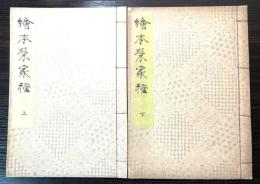 繪本榮家種
上
繪本榮家種
下